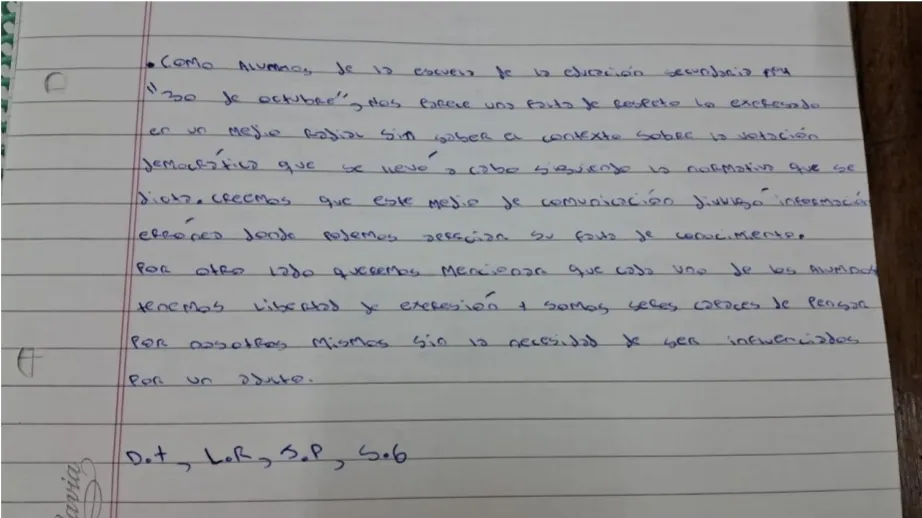 • Como Alumnos de la escuela de la educación secundaria Nº4
"30 de octubre", nos parece una falta de respeto lo expresado
en un medio Radial sin saber el contexto sobre la votación
democrática que se llevó a cabo siguiendo la normativa que se
dicta. Creemos que este medio de comunicación divulgó información
errónea donde podemos apreciar su falta de conocimiento.
Por otro lado queremos mencionar que cada uno de los Alumnos
tenemos libertad de expresión + somos seres capaces de pensar
por nosotros mismos sin la necesidad de ser influenciados
por un adulto.
D.t, L.R, S.P, S.G
avia